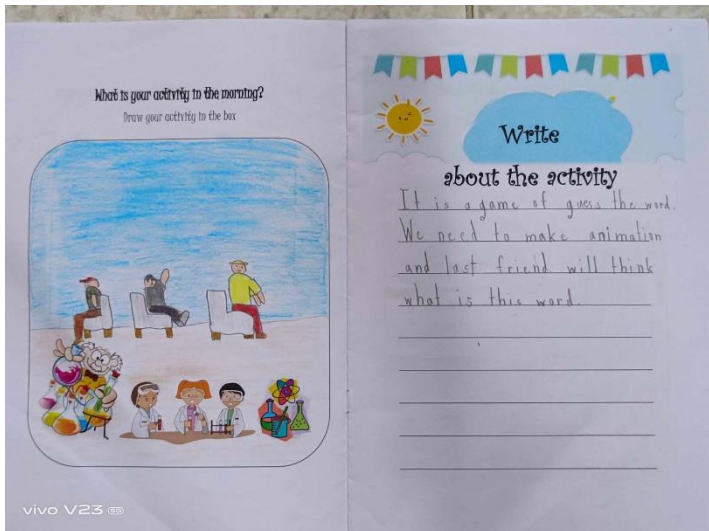 What is your activity in the morning?
Draw your activity in the box
Write
about the activity
It is a game of guess the word.
We need to make animation
and last friend will think
what is this word.
vivo V23 5G